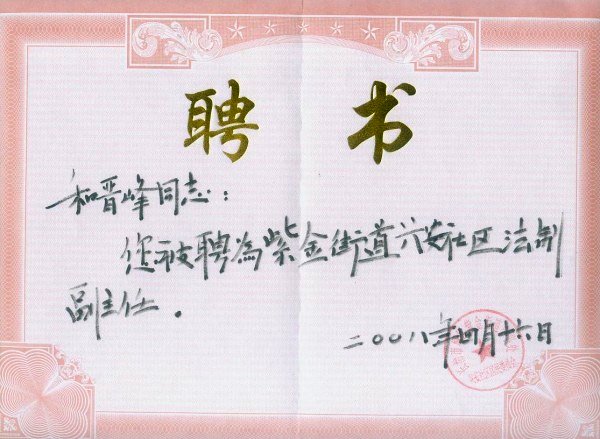 聘书
和晋峰同志：
您被聘為紫金街道六安社区法制
副主任.
二〇〇八年四月十六日